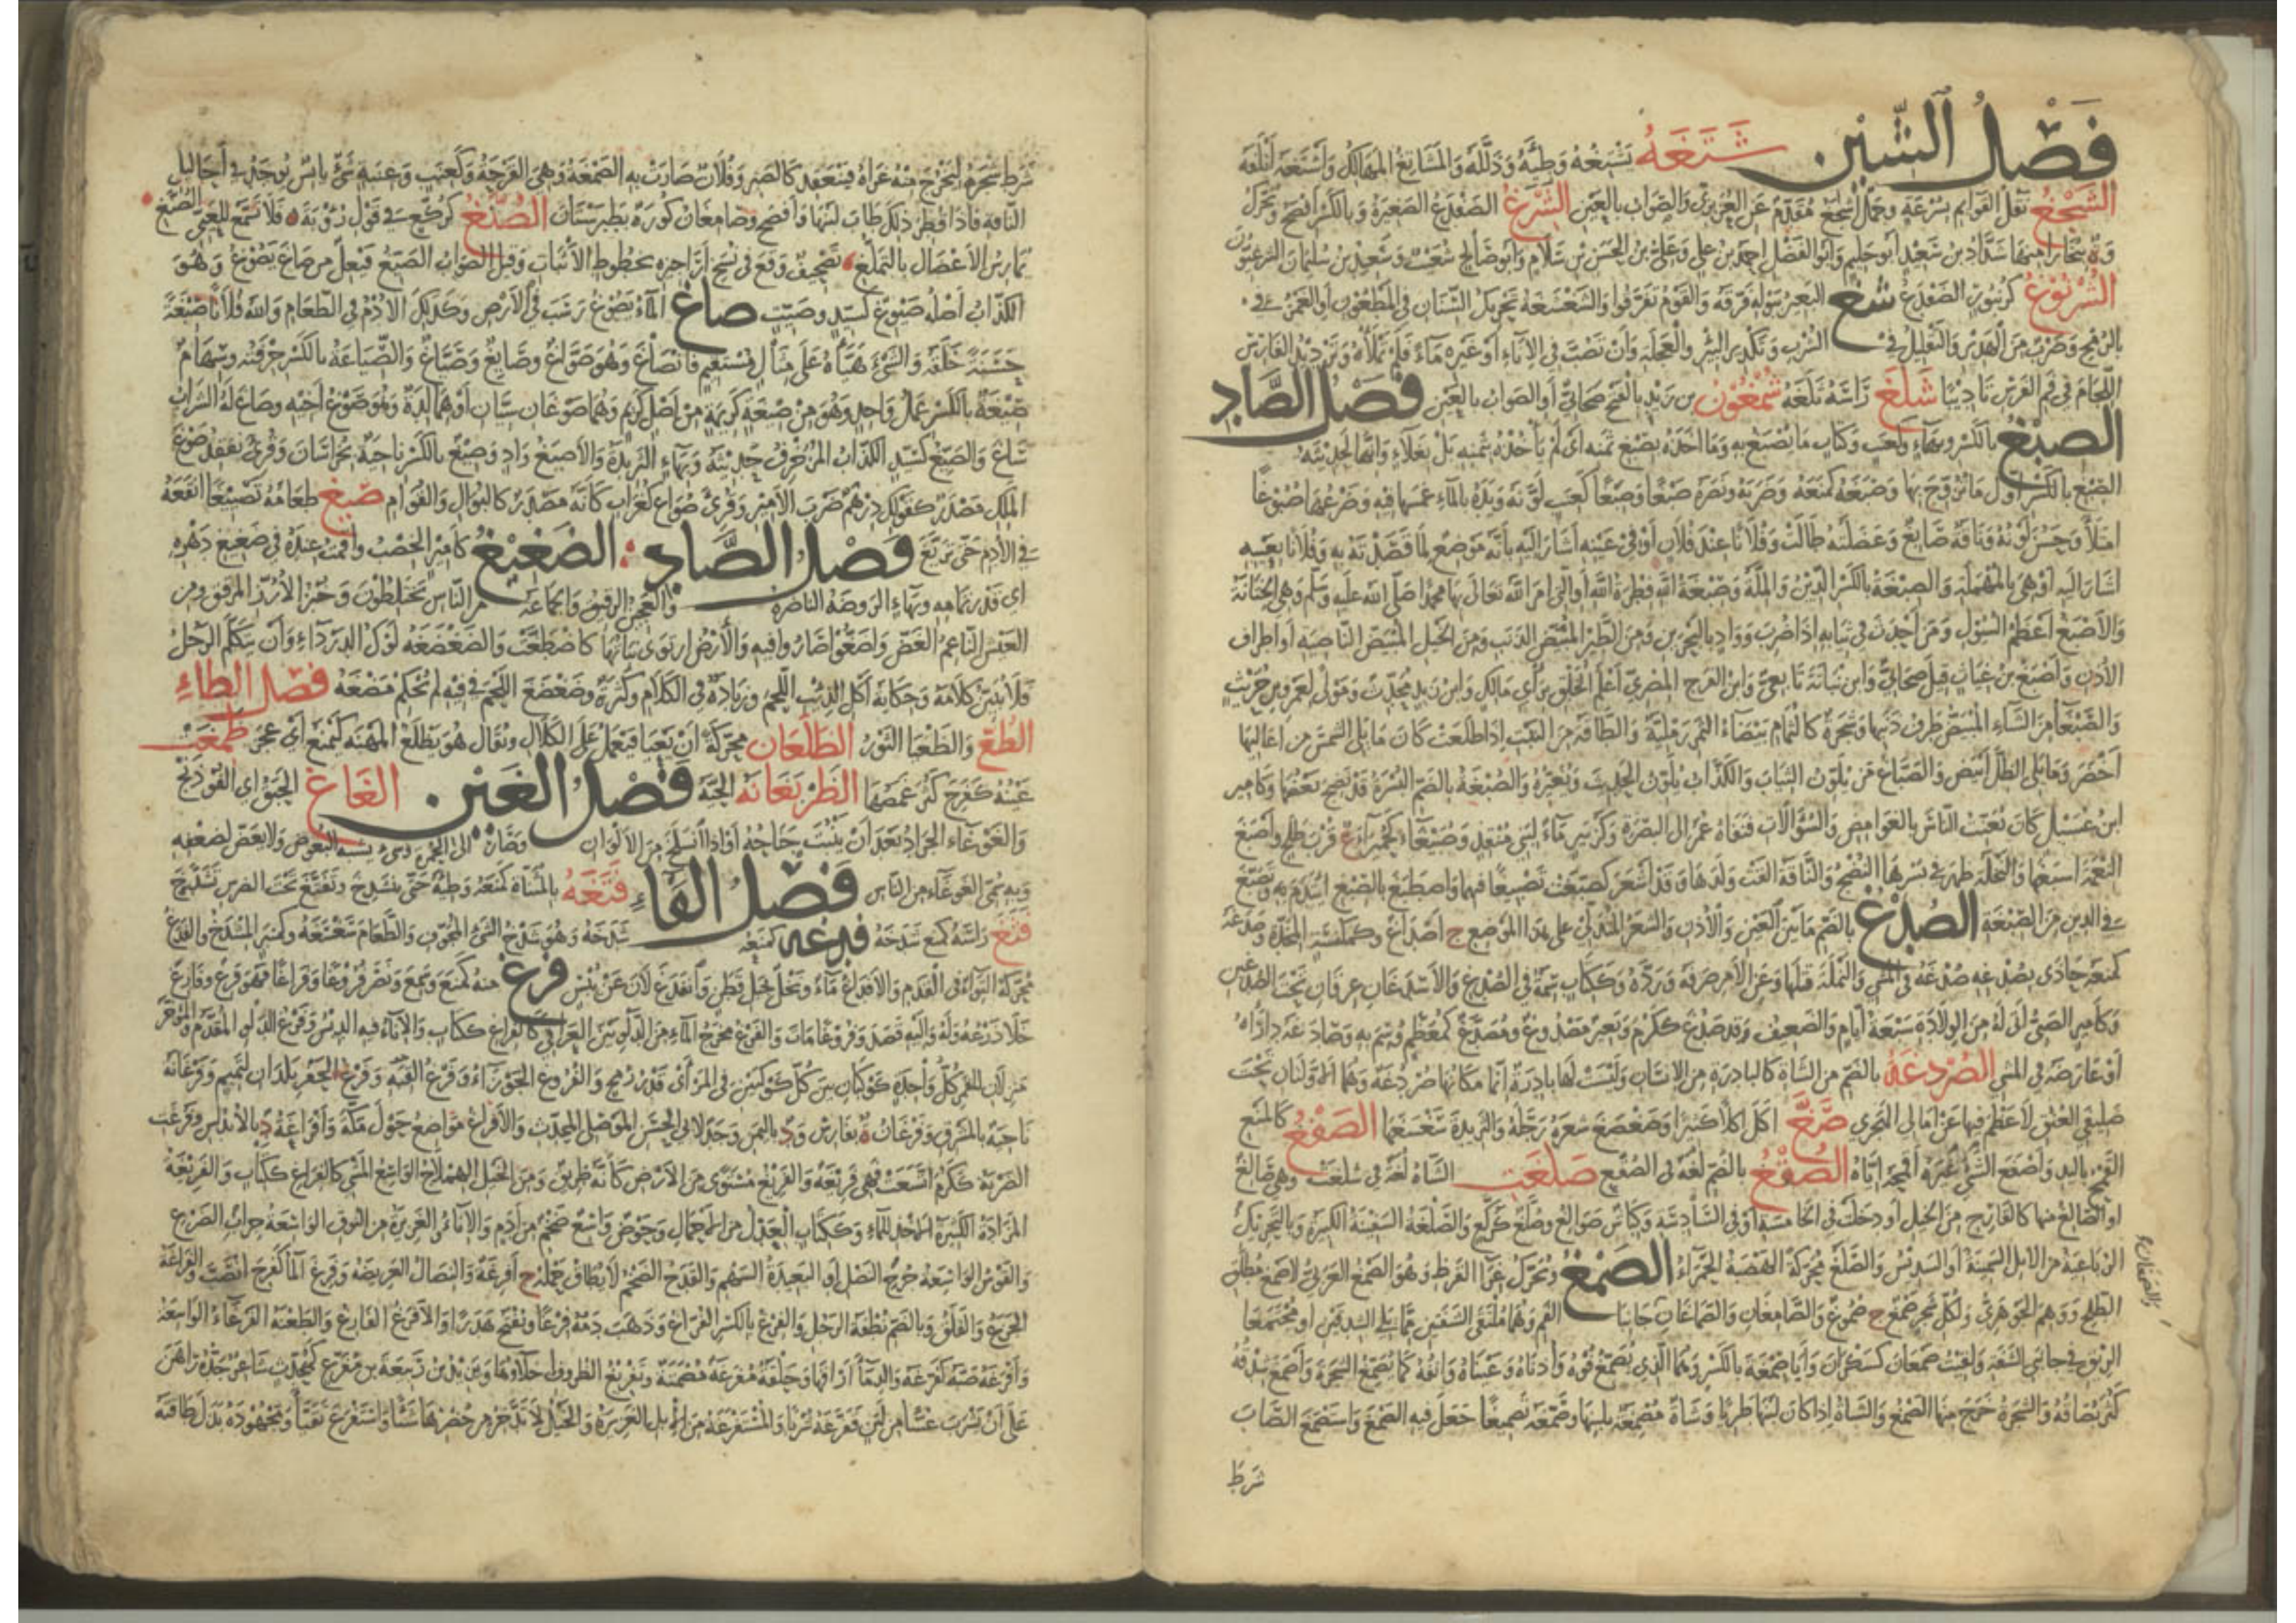 فَصْلُ الشِّين شَتَغَهُ يَشْتِغُهُ وَطِئَهُ وَذَلَّلَهُ وَالمَشَاتِغُ المَهَالِكُ وَأَشْتَغَهُ أَتْلَفَهُ
نَقْلُ القَوَائِمِ بِسُرْعَةٍ وَجَمَلٌ عَنِ العُزَيْزِيِّ وَالصَّوَابُ بِالعَيْنِ الشَّرْغُ الضِّفْدَعُ الصَّغِيرَةُ وَبِالكَسْرِ أَفْصَحُ وَيُحَرَّكُ
شَدَّادُ بنُ سَعِيدٍ أَبُو حَلِيمٍ وَأَبُو الفَضْلِ أَحْمَدُ بنُ عَلِيٍّ وَعَلِيُّ بنُ الحَسَنِ بنِ سَلَامٍ وَأَبُو صَالِحٍ شُعَيْبٌ وَسَعِيدُ بنُ سُلَيْمَانَ الشَّرْغِيُّونَ
الشُّرْنُوغُ كَزُنْبُورٍ الضِّفْدَعُ شَغَّ البَعِيرُ بِبَوْلِهِ فَرَّقَهُ وَالقَوْمُ تَفَرَّقُوا وَالشَّغْشَغَةُ تَحْرِيكُ السِّنَانِ فِي المَطْعُونِ أَوِ الغَمْزُ فِي
بِالرُّمْحِ وَضَرْبٌ مِنَ الهَدِيرِ وَالتَّقْلِيلُ فِي الشُّرْبِ وَتَكْدِيرُ البِئْرِ وَالعَجَلَةُ وَأَنْ تَصُبَّ فِي الإِنَاءِ أَوْ غَيْرِهِ مَاءً
اللِّجَامَ فِي فَمِ الفَرَسِ تَأْدِيبًا شَلَغَ رَأْسَهُ ثَلَغَهُ شَمْغُونُ بن زَيْدٍ بِالفَتْحِ صَحَابِيٌّ أَوِ الصَّوَابُ بِالعَيْنِ فَصْلُ الصَّادِ
الصِّبْغُ بِالكَسْرِ وَبِهَاءٍ وَكَعِنَبٍ وَكِتَابٍ مَا يُصْبَغُ بِهِ وَمَا أَخَذَهُ بِصِبْغِ ثَمَنِهِ أَيْ لَمْ يَأْخُذْهُ بِثَمَنِهِ بَلْ بِغَلَاءٍ
الصِّبْغِ بِالكَسْرِ أَوَّلُ مَا تَزَوَّجَ بِهَا وَصَبَغَهُ كَمَنَعَهُ وَضَرَبَهُ وَنَصَرَهُ صَبْغًا وَصِبَغًا كَعِنَبٍ لَوَّنَهُ وَيَدَهُ بِالمَاءِ غَمَسَهَا فِيهِ وَضَرْعُهَا صُبُوغًا
امْتَلَأَ وَحَسُنَ لَوْنُهُ وَنَاقَةٌ صَابِغٌ وَعَضَلَتُهُ طَالَتْ وَفُلَانًا عِنْدَ فُلَانٍ أَوْ فِي عَيْنِهِ أَشَارَ إِلَيْهِ بِأَنَّهُ مَوْضِعٌ لِمَا قَصَدْتَهُ بِهِ وَفُلَانًا بِعَيْنِهِ
أَشَارَ إِلَيْهِ أَوْ هِيَ بِالمُهْمَلَةِ وَالصِّبْغَةُ بِالكَسْرِ الدِّينُ وَالمِلَّةُ وَصِبْغَةُ اللهِ فِطْرَةُ اللهِ أَوِ الَّتِي أَمَرَ اللهُ تَعَالَى بِهَا مُحَمَّدًا صَلَّى اللهُ عَلَيْهِ وَسَلَّمَ وَهِيَ الخِتَانَةُ
وَالأَصْبَغُ أَعْظَمُ السُّيُولِ وَمَنْ أَحْدَثَ فِي ثِيَابِهِ إِذَا ضُرِبَ وَوَادٍ بِالبَحْرَيْنِ وَمِنَ الطَّيْرِ المُبْيَضُّ الذَّنَبِ وَمِنَ الخَيْلِ المُبْيَضُّ النَّاصِيَةِ أَوْ أَطْرَافِ
الأُذُنِ وَأَصْبَغُ بنُ غِيَاثٍ قِيلَ صَحَابِيٌّ وَابْنُ نُبَاتَةَ تَابِعِيٌّ وَابْنُ الفَرَجِ المِصْرِيُّ أَعْلَمُ الخَلْقِ بِرَأْيِ مَالِكٍ وَابْنُ زَيْدٍ مُحَدِّثٌ وَمَوْلًى لِعَمْرِو بنِ حُرَيْثٍ
وَالصَّبْغَاءُ مِنَ الشَّاءِ المُبْيَضُّ طَرَفُ ذَنَبِهَا وَشَجَرَةٌ كَالثُّمَامِ بَيْضَاءُ الثَّمَرِ رَمْلِيَّةٌ وَالطَّاقَةُ مِنَ النَّبْتِ إِذَا طَلَعَتْ كَانَ مَا يَلِي الشَّمْسَ مِنْ أَعَالِيهَا
أَخْضَرَ وَمَا يَلِي الظِّلَّ أَبْيَضَ وَالصَّبَّاغُ مَنْ يُلَوِّنُ الثِّيَابَ وَالكَذَّابُ يُلَوِّنُ الحَدِيثَ وَيُغَيِّرُهُ وَالصُّبْغَةُ بِالضَّمِّ البُسْرَةُ قَدْ نَضِجَ بَعْضُهَا وَكَأَمِيرٍ
ابْنُ عُسَيْلٍ كَانَ يُعَنِّتُ النَّاسَ بِالغَوَامِضِ وَالسُّؤَالَاتِ فَنَفَاهُ عُمَرُ إِلَى البَصْرَةِ وَكَزُبَيْرٍ مَاءٌ لِبَنِي مُنْقِذٍ وَصُبَيْغَاءُ كَحُمَيْرَاءَ ع قُرْبَ طَلْحٍ وَأَصْبَغَ
النِّعْمَةَ أَسْبَغَهَا وَالنَّخْلَةُ ظَهَرَ فِي بُسْرِهَا النُّضْجُ وَالنَّاقَةُ أَلْقَتْ وَلَدَهَا وَقَدْ أَشْعَرَ كَصَبَّغَتْ تَصْبِيغًا فِيهِمَا وَاصْطَبَغَ بِالصِّبْغِ ائْتَدَمَ بِهِ وَتَصَبَّغَ
فِي الدِّينِ مِنَ الصِّبْغَةِ الصُّدْغُ بِالضَّمِّ مَا بَيْنَ العَيْنِ وَالأُذُنِ وَالشَّعَرُ المُتَدَلِّي عَلَى هَذَا المَوْضِعِ ج أَصْدَاغٌ وَكَمِكْنَسَةٍ المِخَدَّةُ وَصَدَغَهُ
كَمَنَعَهُ حَاذَى بِصُدْغِهِ صُدْغَهُ فِي المَشْيِ وَالنَّمْلَةَ قَتَلَهَا وَعَنِ الأَمْرِ صَرَفَهُ وَرَدَّهُ وَكَكِتَابٍ سِمَةٌ فِي الصُّدْغِ وَالأَصْدَغَانِ عِرْقَانِ تَحْتَ الصُّدْغَيْنِ
وَكَأَمِيرٍ الصَّبِيُّ أَتَى لَهُ مِنَ الوِلَادَةِ سَبْعَةُ أَيَّامٍ وَالضَّعِيفُ وَقَدْ صَدُغَ كَكَرُمَ وَبَعِيرٌ مَصْدُوغٌ وَمُصَدَّغٌ كَمُعَظَّمٍ وُسِمَ بِهِ وَصَادَغَهُ دَارَاهُ
أَوْ عَارَضَهُ فِي المَشْيِ الصُّرْدُغَةُ بِالضَّمِّ مِنَ الشَّاةِ كَالبَادِرَةِ مِنَ الإِنْسَانِ وَلَيْسَتْ لَهَا بَادِرَةٌ إِنَّمَا مَكَانُهَا صُرْدُغَةٌ وَهُمَا الأُولَيَانِ تَحْتَ
صَلِيفَيِ العُنُقِ لَا عَظْمَ فِيهَا صَغَّ أَكَلَ أَكْلًا كَثِيرًا وَصَغْصَغَ شَعَرَهُ رَجَّلَهُ وَالثَّرِيدَةَ سَغْسَغَهَا الصَّفْغُ كَالمَنْعِ
القَمْحُ بِاليَدِ وَأَصْفَغَ الشَّيْءَ غَيْرَهُ أَقْمَحَهُ إِيَّاهُ الصُّقْغُ بِالضَّمِّ لُغَةٌ فِي الصُّقْعِ صَلَغَتِ الشَّاةُ لُغَةٌ فِي سَلَغَتْ وَهِيَ صَالِغٌ
أَوِ الصَّالِغُ مِنْهَا كَالقَارِحِ مِنَ الخَيْلِ أَوْ دَخَلَتْ فِي الخَامِسَةِ أَوْ فِي السَّادِسَةِ وَكِبَاشٌ صَوَالِغُ وَصُلَّغٌ كَرُكَّعٍ وَالصَّلْغَةُ السَّفِينَةُ الكَبِيرَةُ وَبِالتَّحْرِيكِ
الرَّبَاعِيَةُ مِنَ الإِبِلِ السَّمِينَةُ أَوِ السَّدِيسُ وَالصَّلَغُ مُحَرَّكَةً الهَضْبَةُ الحَمْرَاءُ الصَّمْغُ وَيُحَرَّكُ غِرَاءُ القَرَظِ وَهُوَ الصَّمْغُ العَرَبِيُّ لَا صَمْغَ مُطْلَقِ
الطَّلْحِ وَوَهِمَ الجَوْهَرِيُّ وَلِكُلِّ شَجَرٍ صَمْغٌ ج صُمُوغٌ وَالصَّامِغَانِ وَالصِّمَاغَانِ جَانِبَا الفَمِ وَهُمَا مُلْتَقَى الشَّفَتَيْنِ مِمَّا يَلِي الشِّدْقَيْنِ أَوْ مُجْتَمَعَا
الرِّيقِ فِي جَانِبَيِ الشَّفَةِ وَلَقِيتُ صَمْغَانَ كَسَكْرَانَ وَأَبَا صِمْغَةَ بِالكَسْرِ وَهُمَا الَّذِي يُصَمِّغُ فُوهُ وَأُذُنَاهُ وَعَيْنَاهُ وَأَنْفُهُ كَمَا تُصَمِّغُ الشَّجَرَةُ وَأَصْمَغَ شِدْقُهُ
كَثُرَ بُصَاقُهُ وَالشَّجَرَةُ خَرَجَ مِنْهَا الصَّمْغُ وَالشَّاةُ إِذَا كَانَ لَبَنُهَا طَرِيًّا وَشَاةٌ مُصْمِغَةٌ بِلَبَنِهَا وَصَمَّغَهُ تَصْمِيغًا جَعَلَ فِيهِ الصَّمْغَ وَاسْتَصْمَغَ الصَّابَ
شرط
شَرَطَ شَجَرَهُ لِيَخْرُجَ مِنْهُ غِرَاءٌ فَيَنْعَقِدَ كَالصَّبِرِ وَفُلَانٌ صَارَتْ بِهِ الصَّمْغَةُ وَهِيَ القَرْحَةُ وَكَعِنَبٍ وَعِنَبَةٍ شَيْءٌ يَابِسٌ يُوجَدُ فِي أَحَالِيلِ
النَّاقَةِ فَإِذَا فُطِرَ ذَلِكَ طَابَ لَبَنُهَا وَأَفْصَحَ وَصَامِغَانُ كُورَةٌ بِطَبَرِسْتَانَ الصُّنَّغُ كَرُكَّعٍ فِي قَوْلِ رُؤْبَةَ فَلَا تَسَمَّعْ لِلْعَيِيِّ الصُّنَّغِ
يُمَارِسُ الأَعْضَالَ بِالتَّمَلُّغِ تَصْحِيفٌ وَقَعَ فِي نُسَخِ أَرَاجِيزِهِ بِخُطُوطِ الأَثْبَاتِ وَقِيلَ الصَّوَابُ الصَّيِّغُ فَيْعِلٌ مِنْ صَاغَ يَصُوغُ وَهُوَ
الكَذَّابُ أَصْلُهُ صَيْوِغٌ كَسَيِّدٍ وَصَيِّتٍ صَاغَ المَاءُ يَصُوغُ رَسَبَ فِي الأَرْضِ وَكَذَلِكَ الأُدْمُ فِي الطَّعَامِ وَاللهُ فُلَانًا صِيغَةً
حَسَنَةً خَلَقَهُ وَالشَّيْءَ هَيَّأَهُ عَلَى مِثَالٍ مُسْتَقِيمٍ فَانْصَاغَ وَهُوَ صَوَّاغٌ وَصَائِغٌ وَصَيَّاغٌ وَالصِّيَاغَةُ بِالكَسْرِ حِرْفَتُهُ وَسِهَامٌ
صِيغَةٌ بِالكَسْرِ عَمَلُ وَاحِدٍ وَهُوَ مِنْ صِيغَةٍ كَرِيمَةٍ مِنْ أَصْلٍ كَرِيمٍ وَهُمَا صَوْغَانِ سِيَّانِ أَوْ هُمَا لِدَةٌ وَهُوَ صَوْغُ أَخِيهِ وَصَاغَ لَهُ الشَّرَابُ
سَاغَ وَالصَّيِّغُ كَسَيِّدٍ الكَذَّابُ المُزَخْرِفُ حَدِيثَهُ وَبِهَاءٍ الثَّرِيدَةُ وَالأَصْيَغُ وَادٍ وَصِيغُ بِالكَسْرِ نَاحِيَةٌ بِخُرَاسَانَ وَقُرِئَ نَفْقِدُ صَوْغَ
المَلِكِ مَصْدَرٌ كَقَوْلِكَ دِرْهَمٌ ضَرْبُ الأَمِيرِ وَقُرِئَ صُوَاغَ كَغُرَابٍ كَأَنَّهُ مَصْدَرٌ كَالبُوَالِ وَالقُوَامِ صَيَّغَ طَعَامَهُ تَصْيِيغًا أَنْقَعَهُ
فِي الأُدْمِ حَتَّى تَرَيَّغَ فَصْلُ الضَّادِ الضَّغِيغُ كَأَمِيرٍ الخِصْبُ وَأَقَمْتُ عِنْدَهُ فِي ضَغِيغِ دَهْرِهِ
أَيْ قَدْرِ تَمَامِهِ وَبِهَاءٍ الرَّوْضَةُ النَّاضِرَةُ وَالعَجِينُ الرَّقِيقُ وَالجَمَاعَةُ مِنَ النَّاسِ يَخْتَلِطُونَ وَخُبْزُ الأُرْزِ المُرَقَّقُ وَمِنَ
العَيْشِ النَّاعِمُ الغَضُّ وَأَضَغُّوا صَارُوا فِيهِ وَالأَرْضُ ارْتَوَى نَبَاتُهَا كَاضْطَغَّتْ وَالضَّغْضَغَةُ لَوْكُ الدَّرْدَاءِ وَأَنْ يَتَكَلَّمَ الرَّجُلُ
فَلَا يُبَيِّنُ كَلَامَهُ وَحِكَايَةُ أَكْلِ الذِّئْبِ اللَّحْمَ وَزِيَادَةٌ فِي الكَلَامِ وَكَثْرَةٌ وَضَغْضَغَ اللَّحْمَ فِي فِيهِ لَمْ يُحْكِمْ مَضْغَهُ فَصْلُ الطَّاءِ
الطَّغُّ وَالطَّغْيَا الثَّوْرُ الطَّلَغَانُ مُحَرَّكَةً أَنْ يَعْيَا فَيَعْمَلَ عَلَى الكَلَالِ وَيُقَالُ هُوَ يَطْلَغُ المَهْنَةَ كَيَمْنَعُ أَيْ عَجَزَ طَمِغَتْ
عَيْنُهُ كَفَرِحَ كَثُرَ غَمَصُهَا الظَّرْبَغَانَةُ الحَيَّةُ فَصْلُ الغَيْنِ الغَاغُ الحَبَقُ أَيِ الفُوذَنْجُ
وَالغَوْغَاءُ الجَرَادُ بَعْدَ أَنْ يَنْبُتَ جَنَاحُهُ أَوْ إِذَا انْسَلَخَ مِنَ الأَلْوَانِ وَصَارَ إِلَى الحُمْرَةِ وَشَيْءٌ يُشْبِهُ البَعُوضَ وَلَا يَعَضُّ لِضَعْفِهِ
وَبِهِ سُمِّيَ الغَوْغَاءُ مِنَ النَّاسِ فَصْلُ الفَاءِ فَتَغَهُ بِالمُثَنَّاةِ كَمَنَعَهُ وَطِئَهُ حَتَّى يَنْشَدِخَ وَتَفَتَّغَ تَحْتَ الضِّرْسِ تَشَدَّخَ
فَثَغَ رَأْسَهُ كَمَنَعَ شَدَخَهُ فَدَغَهُ كَمَنَعَهُ شَدَخَهُ وَهُوَ شَدْخُ الشَّيْءِ المُجَوَّفِ وَالطَّعَامَ سَغْسَغَهُ وَكَمِنْبَرٍ المِشْدَخُ وَالفَدَغُ
مُحَرَّكَةً الْتِوَاءٌ فِي القَدَمِ وَالأَفْدَاغُ مَاءٌ وَنَخْلٌ بِجَبَلِ قَطَنٍ وَانْفَدَغَ لَانَ عَنْ يُبْسٍ فَرَغَ مِنْهُ كَمَنَعَ وَسَمِعَ وَنَصَرَ فُرُوغًا وَفَرَاغًا فَهُوَ فَرِغٌ وَفَارِغٌ
خَلَا ذَرْعُهُ وَلَهُ وَإِلَيْهِ قَصَدَ وَفُرُوغًا مَاتَ وَالفَرْغُ مَخْرَجُ المَاءِ مِنَ الدَّلْوِ بَيْنَ العَرَاقِي كَالفِرَاغِ كَكِتَابٍ وَالإِنَاءُ فِيهِ الدِّبْسُ وَفَرْغُ الدَّلْوِ المُقَدَّمُ وَالمُؤَخَّرُ
مَنْزِلَانِ لِلقَمَرِ كُلُّ وَاحِدَةٍ كَوْكَبَانِ بَيْنَ كُلِّ كَوْكَبَيْنِ فِي المَرْأَى قَدْرُ رُمْحٍ وَالفُرُوغُ الجَوْزَاءُ وَفَرْغُ القِبَّةِ وَفَرْغُ الحَفَرِ بَلَدَانِ لِتَمِيمٍ وَفَرْغَانَةُ
نَاحِيَةٌ بِالمَشْرِقِ وَفَرْغَانُ ة بِفَارِسَ ود بِاليَمَنِ وَجَدٌّ لِأَبِي الحَسَنِ المَوْصِلِيِّ المُحَدِّثِ وَالأَفْرَاغُ مَوَاضِعُ حَوْلَ مَكَّةَ وَأَفْرَاغَةُ د بِالأَنْدَلُسِ وَفَرُغَتِ
الضَّرْبَةُ كَكَرُمَ اتَّسَعَتْ فَهِيَ فَرِيغَةٌ وَالفَرِيغُ مُسْتَوًى مِنَ الأَرْضِ كَأَنَّهُ طَرِيقٌ وَمِنَ الخَيْلِ الهِمْلَاجُ الوَاسِعُ المَشْيِ كَالفِرَاغِ كَكِتَابٍ وَالفَرِيغَةُ
المَزَادَةُ الكَثِيرَةُ الأَخْذِ لِلْمَاءِ وَكَكِتَابٍ العِدْلُ مِنَ الأَحْمَالِ وَحَوْضٌ وَاسِعٌ ضَخْمٌ مِنْ أَدَمٍ وَالإِنَاءُ وَالغَزِيرَةُ مِنَ النُّوقِ الوَاسِعَةُ جِرَابِ الضَّرْعِ
وَالقَوْسُ الوَاسِعَةُ جُرْحِ النَّصْلِ أَوِ البَعِيدَةُ السَّهْمِ وَالقَدَحُ الضَّخْمُ لَا يُطَاقُ حَمْلُهُ ج أَفْرِغَةٌ وَالنِّصَالُ العَرِيضَةُ وَفَرِغَ المَاءُ كَفَرِحَ انْصَبَّ وَالفَرَاغَةُ
الجَزَعُ وَالقَلَقُ وَبِالضَّمِّ نُطْفَةُ الرَّجُلِ وَالفِرْغُ بِالكَسْرِ الفَرَاغُ وَذَهَبَ دَمُهُ فِرْغًا وَيُفْتَحُ هَدَرًا وَالأَفْرَغُ الفَارِغُ وَالطَّعْنَةُ الفَرْغَاءُ الوَاسِعَةُ
وَأَفْرَغَهُ صَبَّهُ كَفَرَّغَهُ وَالدِّمَاءَ أَرَاقَهَا وَحَلْقَةٌ مُفْرَغَةٌ مُصْمَتَةٌ وَتَفْرِيغُ الظُّرُوفِ إِخْلَاؤُهَا وَيَزِيدُ بنُ رَبِيعَةَ بنِ مُفَرِّغٍ كَمُحَدِّثٍ شَاعِرٌ جَدُّهُ رَاهَنَ
عَلَى أَنْ يَشْرَبَ عُسًّا مِنْ لَبَنٍ فَفَرَّغَهُ شُرْبًا وَالمُسْتَفْرِغَةُ مِنَ الإِبِلِ الغَزِيرَةُ وَالخَيْلُ لَا تَدَّخِرُ مِنْ حُضْرِهَا شَيْئًا وَاسْتَفْرَغَ تَقَيَّأَ وَمَجْهُودَهُ بَذَلَ طَاقَتَهُ